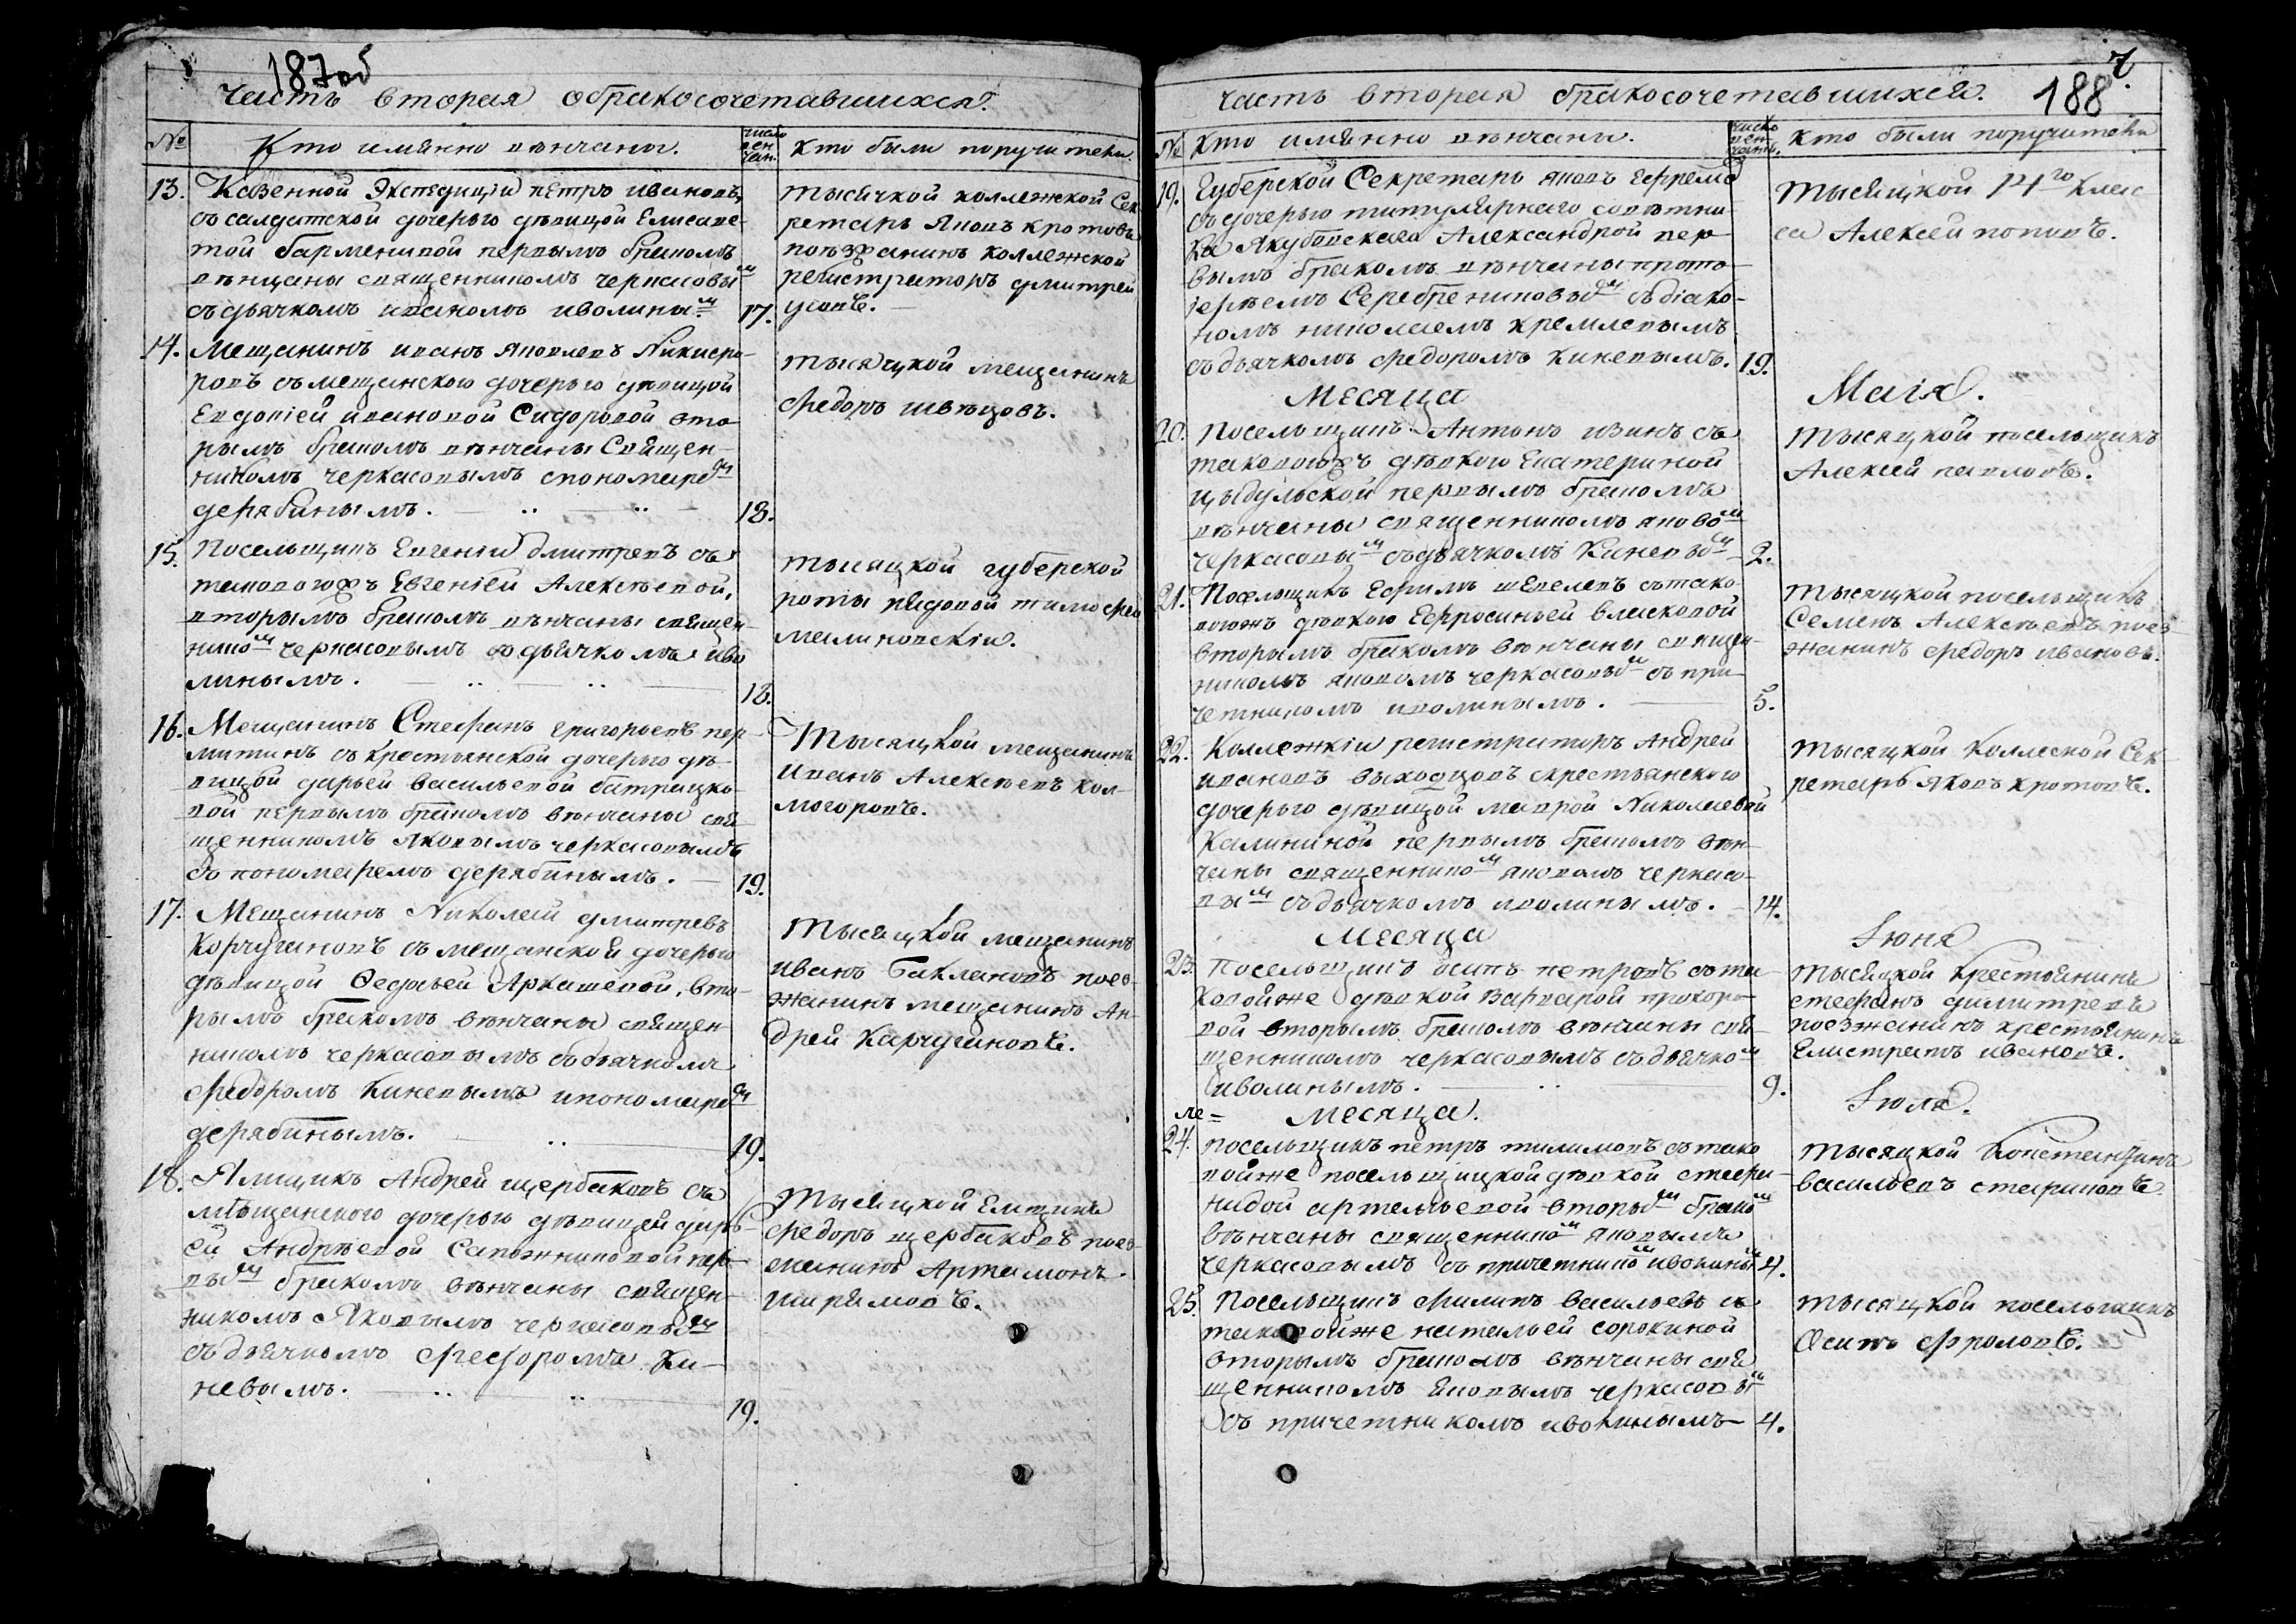 187об
Часть вторая обракосочетавшихся.
№
Кто имянно венчаны.
число вен чан.
Кто были поручители.
13. Казенной Экспедиции петръ ивановъ,
съ салдатской дочерью девицой Елисаве-
той барменивой первымъ бракомъ
венчаны священникомъ черкасовым
съ дьячкомъ иваномъ иволины.м 17.
тысяцкой коллежской Сек
ретарь Яковъ кротовъ
поезжанинъ коллежской
регистраторъ дмитрей
усовъ.
14. Мещанинъ иванъ Яковлевъ Никифо-
ровъ съ мещанскою дочерью девицой
Евдокіей ивановой Сидоровой вто
рымъ бракомъ венчаны Священ-
никомъ черкасовымъ спономарем
дерябинымъ. 18.
тысяцкой мещанинъ
Федоръ швецовъ.
15. Посельщикъ Евгеніи дмитревъ съ
таковоюжъ Евгеніей Алексеевой,
вторымъ бракомъ венчаны священ-
ником черкасовымъ съ дьячкомъ иво
линымъ. 18.
тысяцкой губерской
роты рядовой тимофеи
малиновскіи.
16. Мещанинъ Стефанъ григорьевъ пер-
митинъ съ крестьянской дочерью де-
вицой дарьей васильевой батрацко-
вой первымъ бракомъ венчаны свя
щенникомъ яковымъ черкасовымъ
съ пономаремъ дерябинымъ. 19.
Тысяцкой мещанинъ
Иванъ Алексеевъ кол-
могоровъ.
17. Мещанинъ Николай дмитревъ
Корчугановъ съ мещанской дочерью
девицой Федосьей Аркашевой, вто-
рымъ бракомъ венчаны священ
никомъ черкасовымъ съ дьячкомъ
Федоромъ Киневымъ ипономарем
дерябинымъ. 19.
Тысяцкой мещанинъ
иванъ Баклановъ поез-
жанинъ мещанинъ Ан-
дрей Карчугановъ.
18. Ямщикъ Андрей щербаковъ съ
мещанскою дочерью девицей дарь-
ей Андреевой Сапожниковой пер
вым бракомъ венчаны священ-
никомъ Яковымъ черкасовым
съ дьячкомъ Федоромъ Ки-
невымъ. 19.
Тысяцкой Емщикъ
Федоръ щербаковъ поез-
жанинъ Артамонъ
ширямовъ.
7.
188
часть вторая бракосочетавшихся.
№
Кто имянно венчаны.
число вен- чаны.
Кто были поручители
19. Губерской Секретарь яковъ Ефремов
съ дочерью титулярнаго советни-
ка Якубовскаго Александрой пер
вымъ бракомъ венчаны прото
іереемъ Серебрениковым съ діако-
номъ николаемъ кремлевымъ
съ дьячкомъ Федоромъ Киневымъ. 19.
тысяцкой 14го Клас
са Алексей поповъ.
Месяца Маія.
20. Посельщикъ Антонъ изинъ съ
таковоюжъ девкою Екатериной
цыбульской первымъ бракомъ
венчаны священникомъ яковом
черкасовым съ дьячкомъ Киневым 2.
тысяцкой посельщикъ
Алексей павловъ.
21. Посельщикъ Ефимъ шевелевъ сътако
воюжъ девкою Ефросиньей власковой
вторымъ бракомъ венчаны священ-
никомъ яковомъ черкасовым съ при-
четникомъ иволинымъ. 5.
тысяцкой посельщикъ
Семенъ Алексеевъ поез-
жанинъ Федоръ ивановъ.
22. Коллежкіи регистраторъ Андрей
ивановъ выходцовъ скрестьянскою
дочерью девицой маврой Николаевой
Калининой первымъ бракомъ вен-
чаны священником яковомъ черкасо-
вым съ дьячкомъ иволинымъ. 14.
тысяцкой Коллеской Сек-
ретарь яковъ кротовъ.
Месяца Іюня
23. Посельщикъ осипъ петровъ съта-
ковойже девкой варварой прохоро-
вой вторымъ бракомъ венчаны свя-
щенникомъ черкасовымъ съ дьячком
иволинымъ. 9.
тысяцкой крестьянинъ
стефанъ димитревъ
поезжанинъ крестьянинъ
Елистратъ ивановъ.
ле= месяца. Іюля.
24. посельщикъ петръ тилимовъ сътако
войже посельщицкой девкой стефа-
нидой артемьевой вторым браком
венчаны священником яковымъ
черкасовымъ съ причетником иволиным 4.
тысяцкой Констентинъ
васильевъ стариковъ.
25. Посельщикъ Филипъ васильевъ съ
таковойже натальей сорокиной
вторымъ бракомъ венчаны свя
щенникомъ яковымъ черкасовым
съ причетникомъ иволинымъ 4.
тысяцкой посельщикъ
Осипъ Фроловъ.